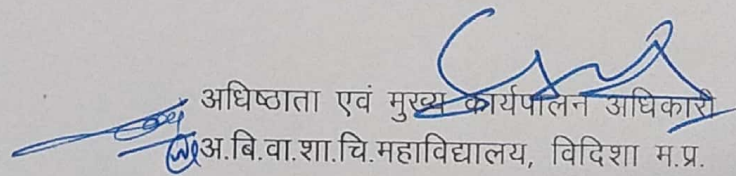 अधिष्ठाता एवं मुख्य कार्यपालन अधिकारी
अ.बि.वा.शा.चि.महाविद्यालय, विदिशा म.प्र.